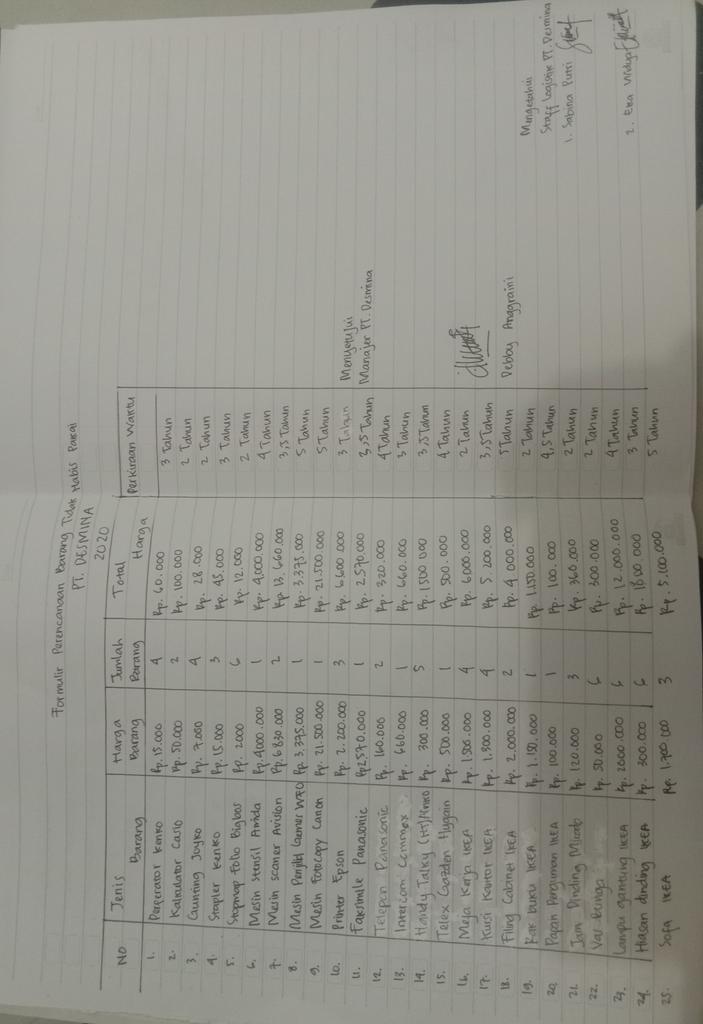 Formulir Perencanaan Barang Tidak Habis Pakai
PT. DESMINA
2020
NO Jenis Barang Harga Barang Jumlah Barang Total Harga Perkiraan Waktu
1. Perforator Kenko Rp. 15.000 4 Rp. 60.000 3 Tahun
2. Kalkulator Casio Rp. 50.000 2 Rp. 100.000 2 Tahun
3. Gunting Joyko Rp. 7.000 4 Rp. 28.000 2 Tahun
4. Stapler Kenko Rp. 15.000 3 Rp. 45.000 3 Tahun
5. Stopmap Folio Bigbos Rp. 2000 6 Rp. 12.000 2 Tahun
6. Mesin Stensil Amida Rp. 4000.000 1 Rp. 4.000.000 4 Tahun
7. Mesin scaner Avision Rp. 6.830.000 2 Rp 13.660.000 3,5 Tahun
8. Mesin Penjilid Laemer Rp. 3.375.000 1 Rp. 3.375.000 5 Tahun
9. Mesin Fotocopy Canon Rp. 21.500.000 1 Rp. 21.500.000 5 Tahun
10. Printer Epson Rp. 2.200.000 3 Rp. 6.600.000 3 Tahun
11. Faksimile Panasonic Rp 2570.000 1 Rp. 2.570.000 3,5 Tahun
12. Telepon Panasonic Rp. 160.000 2 Rp. 320.000 4 Tahun
13. Intercom Commax Rp. 660.000 1 Rp. 660.000 3 Tahun
14. Handy Talky (HT) Rp. 300.000 5 Rp. 1500.000 3,5 Tahun
15. Telex Gazden Hygain Rp. 500.000 1 Rp. 500.000 4 Tahun
16. Meja Kerja IKEA Rp. 1.500.000 4 Rp. 6000.000 2 Tahun
17. Kursi Kantor IKEA Rp. 1.300.000 4 Rp. 5.200.000 3,5 Tahun
18. Filing Cabinet IKEA Rp. 2.000.000 2 Rp. 4.000.000 5 Tahun
19. Rak buku IKEA Rp. 1.150.000 1 Rp. 1.150.000 2 Tahun
20. Papan Pengumuman IKEA Rp. 100.000 1 Rp. 100.000 4,5 Tahun
21. Jam Dinding Rp. 120.000 3 Rp. 360.000 2 Tahun
22. Vas bunga Rp. 50.000 6 Rp. 300.000 2 Tahun
23. Lampu gantung IKEA Rp. 2000.000 6 Rp. 12.000.000 4 Tahun
24. Hiasan dinding IKEA Rp. 300.000 6 Rp. 1800.000 3 Tahun
25. Sofa IKEA Rp. 1.700.000 3 Rp. 5.100.000 5 Tahun
Menyetujui
Manajer PT. Desmina
Debby Anggraini
Mengetahui
Staff Logistik PT. Desmina
1. Sabina Putri
2. Eka Widya